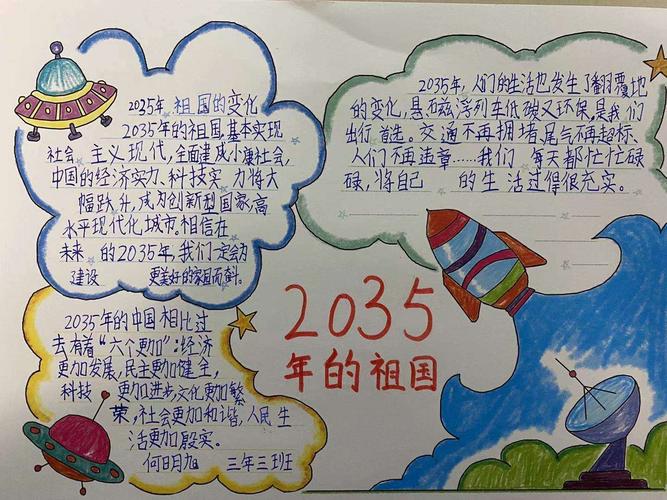 2035年祖国的变化
2035年的祖国,基本实现
社会主义现代,全面建成小康社会,
中国的经济实力、科技实力将大
幅跌升,成为创新型国家,高
水平现代化城市。相信在
未来的2035年,我们一定会为
建设更美好的家园而斜。
2035年,人们的生活也发生了翻覆地
的变化,悬磁浮列车低碳又环保,是我们
出行首选。交通不再拥堵,尾气不再超标、
人们不再违章……我们每天都忙忙碌
碌,将自己的生活过得很充实。
2035
年的祖国
2035年的中国相比过
去有着“六个更加”:经济
更加发展,民主更加健全,
科技更加进步,文化更加繁
荣,社会更加和谐,人民生
活更加殷实。
何日月旭 三年三班